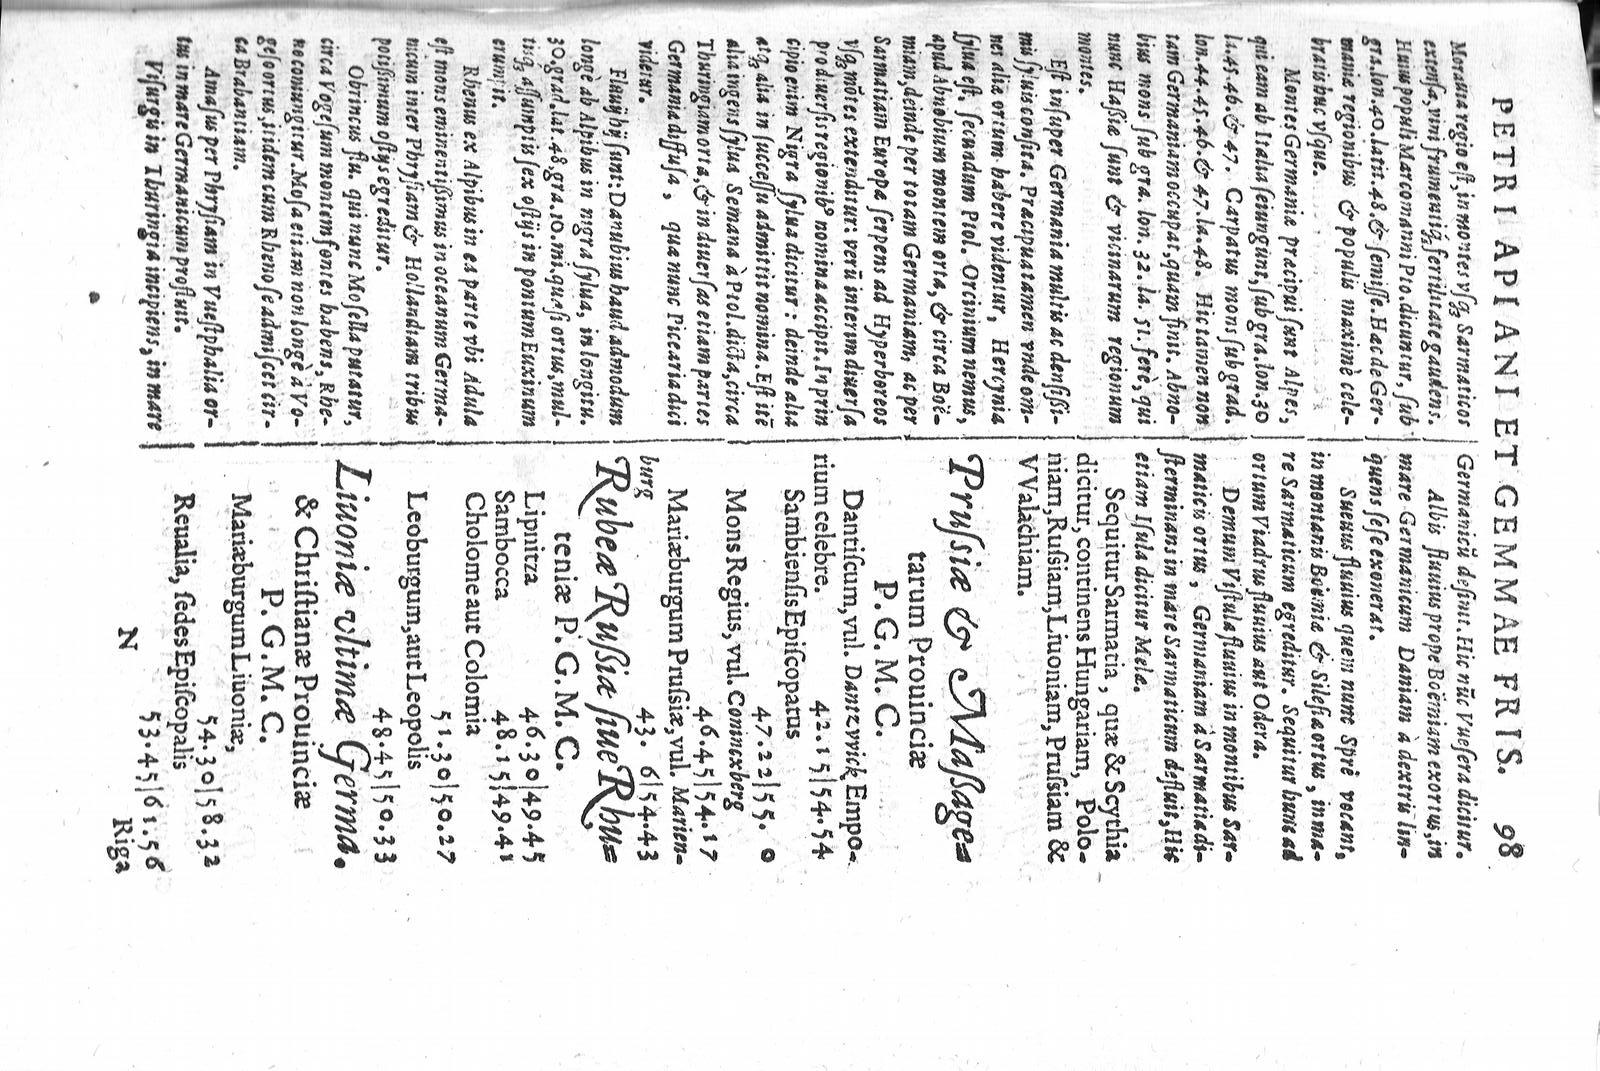 PETRI APIANI ET GEMMAE FRIS. 98
Morauia regio est, in montes vsq₃ Sarmaticos
extensa, vini frumentiq́₃ fertilitate gaudens.
Huius populi Marcomanni Pto. dicuntur, sub
gra. lon. 40. latit. 48. & semisse. Hac de Ger-
mania regionibus & populis maximè cele-
bratis huc vsque.
Montes Germaniæ præcipui sunt Alpes,
qui eam ab Italia seiungunt, sub gra. lon. 30
la. 45. 46. & 47. Carpatus mons sub grad.
lon. 44. 45. 46. & 47. la. 48. Hic tamen non
tam Germaniam occupat, quam finit. Abno-
bius mons sub gra. lon. 32. la. 51. ferè, qui
nunc Hassiæ sunt & vicinarum regionum
montes.
Est insuper Germania multis ac densissi-
mis syluis consita. Præcipua tamen vnde om-
nes aliæ ortum habere videntur, Hercynia
sylua est. secundum Ptol. Orcinium nemus,
apud Abnobium montem orta, & circa Boë-
miam, deinde per totam Germaniam, ac per
Sarmatiam Europæ serpens ad Hyperboreos
vsq₃ mõtes extenditur: verũ interum diuersa
pro diuersis regionib⁹ nomina accipit. In prin
cipio enim Nigra sylua dicitur: deinde alia
atq₃ alia in successu admittit nomina. Est itẽ
alia ingens sylua Semana à Ptol. dicta, circa
Thuringiam orta, & in diuersas etiam partes
Germaniæ diffusa, quæ nunc Picearia dici
videtur.
Fluuij hij sunt: Danubius haud admodum
longè ab Alpibus in nigra sylua, in longitu.
30. grad. lat. 48. gra. 10. mi. quasi ortus, mul-
tisq₃ assumptis sex ostijs in pontum Euxinum
erumpit.
Rhenus ex Alpibus in ea parte vbi Adula
est mons eminentissimus in oceanum Germa-
nicum inter Phrysiam & Hollandiam tribus
potissimum ostijs egreditur.
Obrincus flu. qui nunc Mosella putatur,
circa Vogesum montem fontes habens, Rhe-
no coniungitur. Mosa etiam non longè à Vo-
geso ortus, itidem cum Rheno se admiscet cir-
ca Brabantiam.
Amasus per Phrysiam in Vuestphalia or-
tus in mare Germanicum profluit.
Visurgis in Thuringia incipiens, in mare
Germanicũ desinit. Hic nũc Vuesera dicitur.
Albis fluuius prope Boëmiam exortus, in
mare Germanicum Daniam à dextris lin-
quens sese exonerat.
Sueuus fluuius quem nunc Sprè vocant,
in montanis Boëmiæ & Silesiæ ortus, in ma-
re Sarmaticum egreditur. Sequitur hunc ad
ortum Viadrus fluuius aut Odera.
Demum Vistula fluuius in montibus Sar-
maticis ortus, Germaniam à Sarmatia di-
sterminans in mare Sarmaticum defluit, Hic
etiam Isula dicitur Mela.
Sequitur Sarmatia, quæ & Scythia
dicitur, continens Hungariam, Polo-
niam, Russiam, Liuoniam, Prussiam &
VValachiam.
Prussiæ & Massage=
tarum Prouinciæ
P. G. M. C.
Dantiscum, vul. Dantzwick Empo-
rium celebre. 42.15|54.54
Sambiensis Episcopatus
47.22|55. 0
Mons Regius, vul. Connexberg
46.45|54.17
Mariæburgum Prussiæ, vul. Marien-
burg 43. 6|54.43
Rubeæ Russiæ siue Rhu=
teniæ P. G. M. C.
Lipnitza 46.30|49.45
Sambocca 48.15|49.41
Cholome aut Colomia
51.30|50.27
Leoburgum, aut Leopolis
48.45|50.33
Liuoniæ vltimæ Germa.
& Christianæ Prouinciæ
P. G. M. C.
Mariæburgum Liuoniæ,
54.30|58.32
Reualia, sedes Episcopalis
53.45|61.56
N Riga